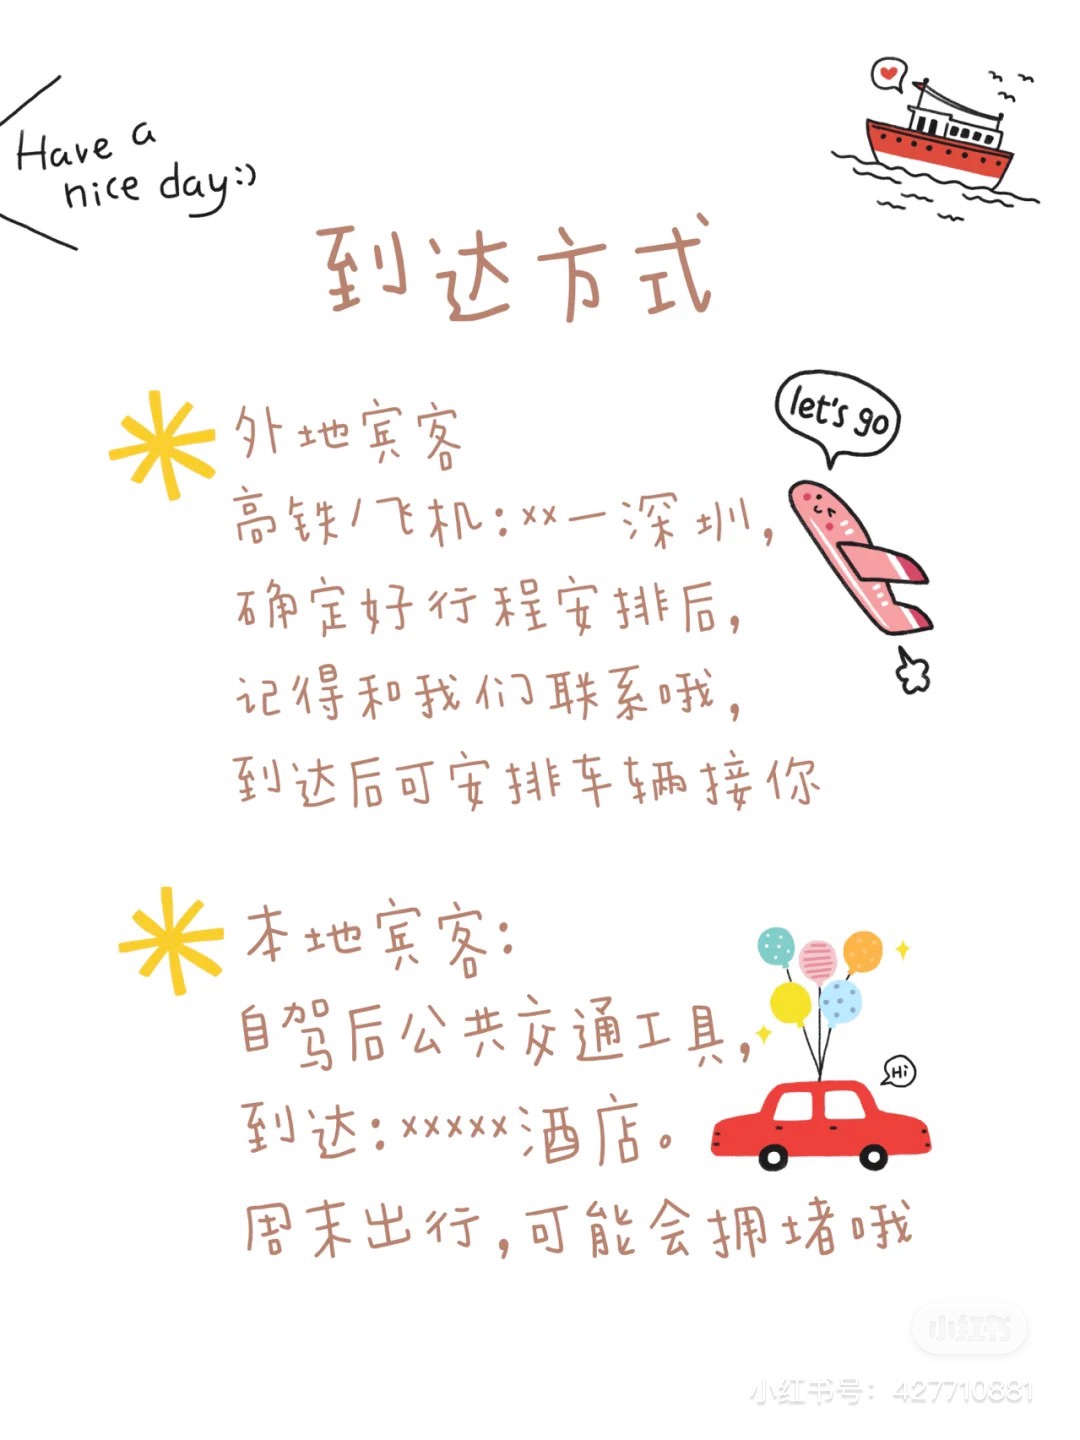 Have a
nice day:)
到达方式
let's go
外地宾客
高铁/飞机:xx一深圳,
确定好行程安排后,
记得和我们联系哦,
到达后可安排车辆接你
本地宾客:
自驾后公共交通工具,
Hi
到达:xxxxx酒店。
周末出行,可能会拥堵哦
小红书
小红书号: 427710881